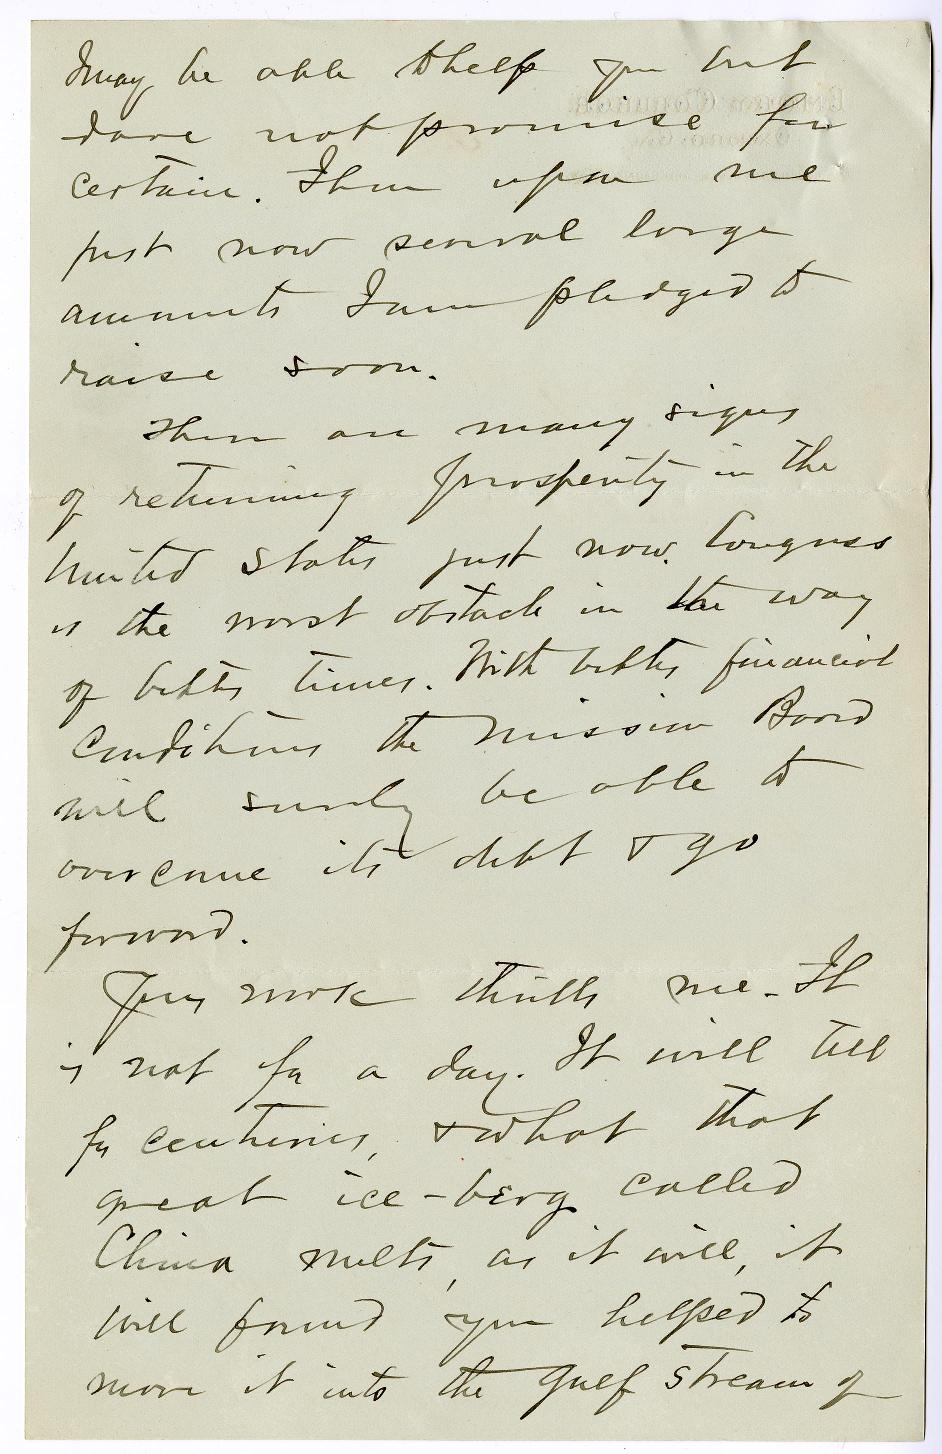 I may be able to help you but
dare not promise for
certain. I have upon me
just now several large
amounts I am pledged to
raise soon.
There are many signs
of returning prosperity in the
United States just now. Congress
is the worst obstacle in the way
of better times. With better financial
conditions the Mission Board
will surely be able to
overcome its debt & go
forward.
Your work thrills me. It
is not for a day. It will tell
for centuries, & what that
great ice-berg called
China melts, as it will, it
will found you helped to
move it into the gulf stream of